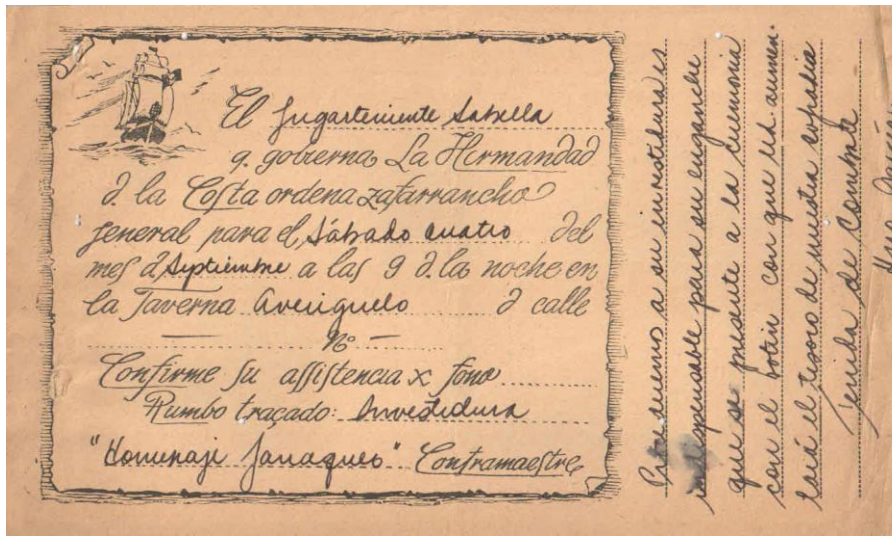 El Lugarteniente Sabella
q. gobierna La Hermandad
d. la Costa ordena zafarrancho
general para el, Sábado cuatro del
mes d. Septiembre a las 9 d. la noche en
la Taverna Averiguelo d calle
Nº
Confirme su assistencia x fono
Rumbo traçado: Investidura
"Homenaje Contramaestre
Procederemos a su investidura es
indispensable para su enganche
que se presente a la ceremonia
con el botín con que Ud. aumen-
tará el tesoro de nuestra cofradía
Tenida de Combate